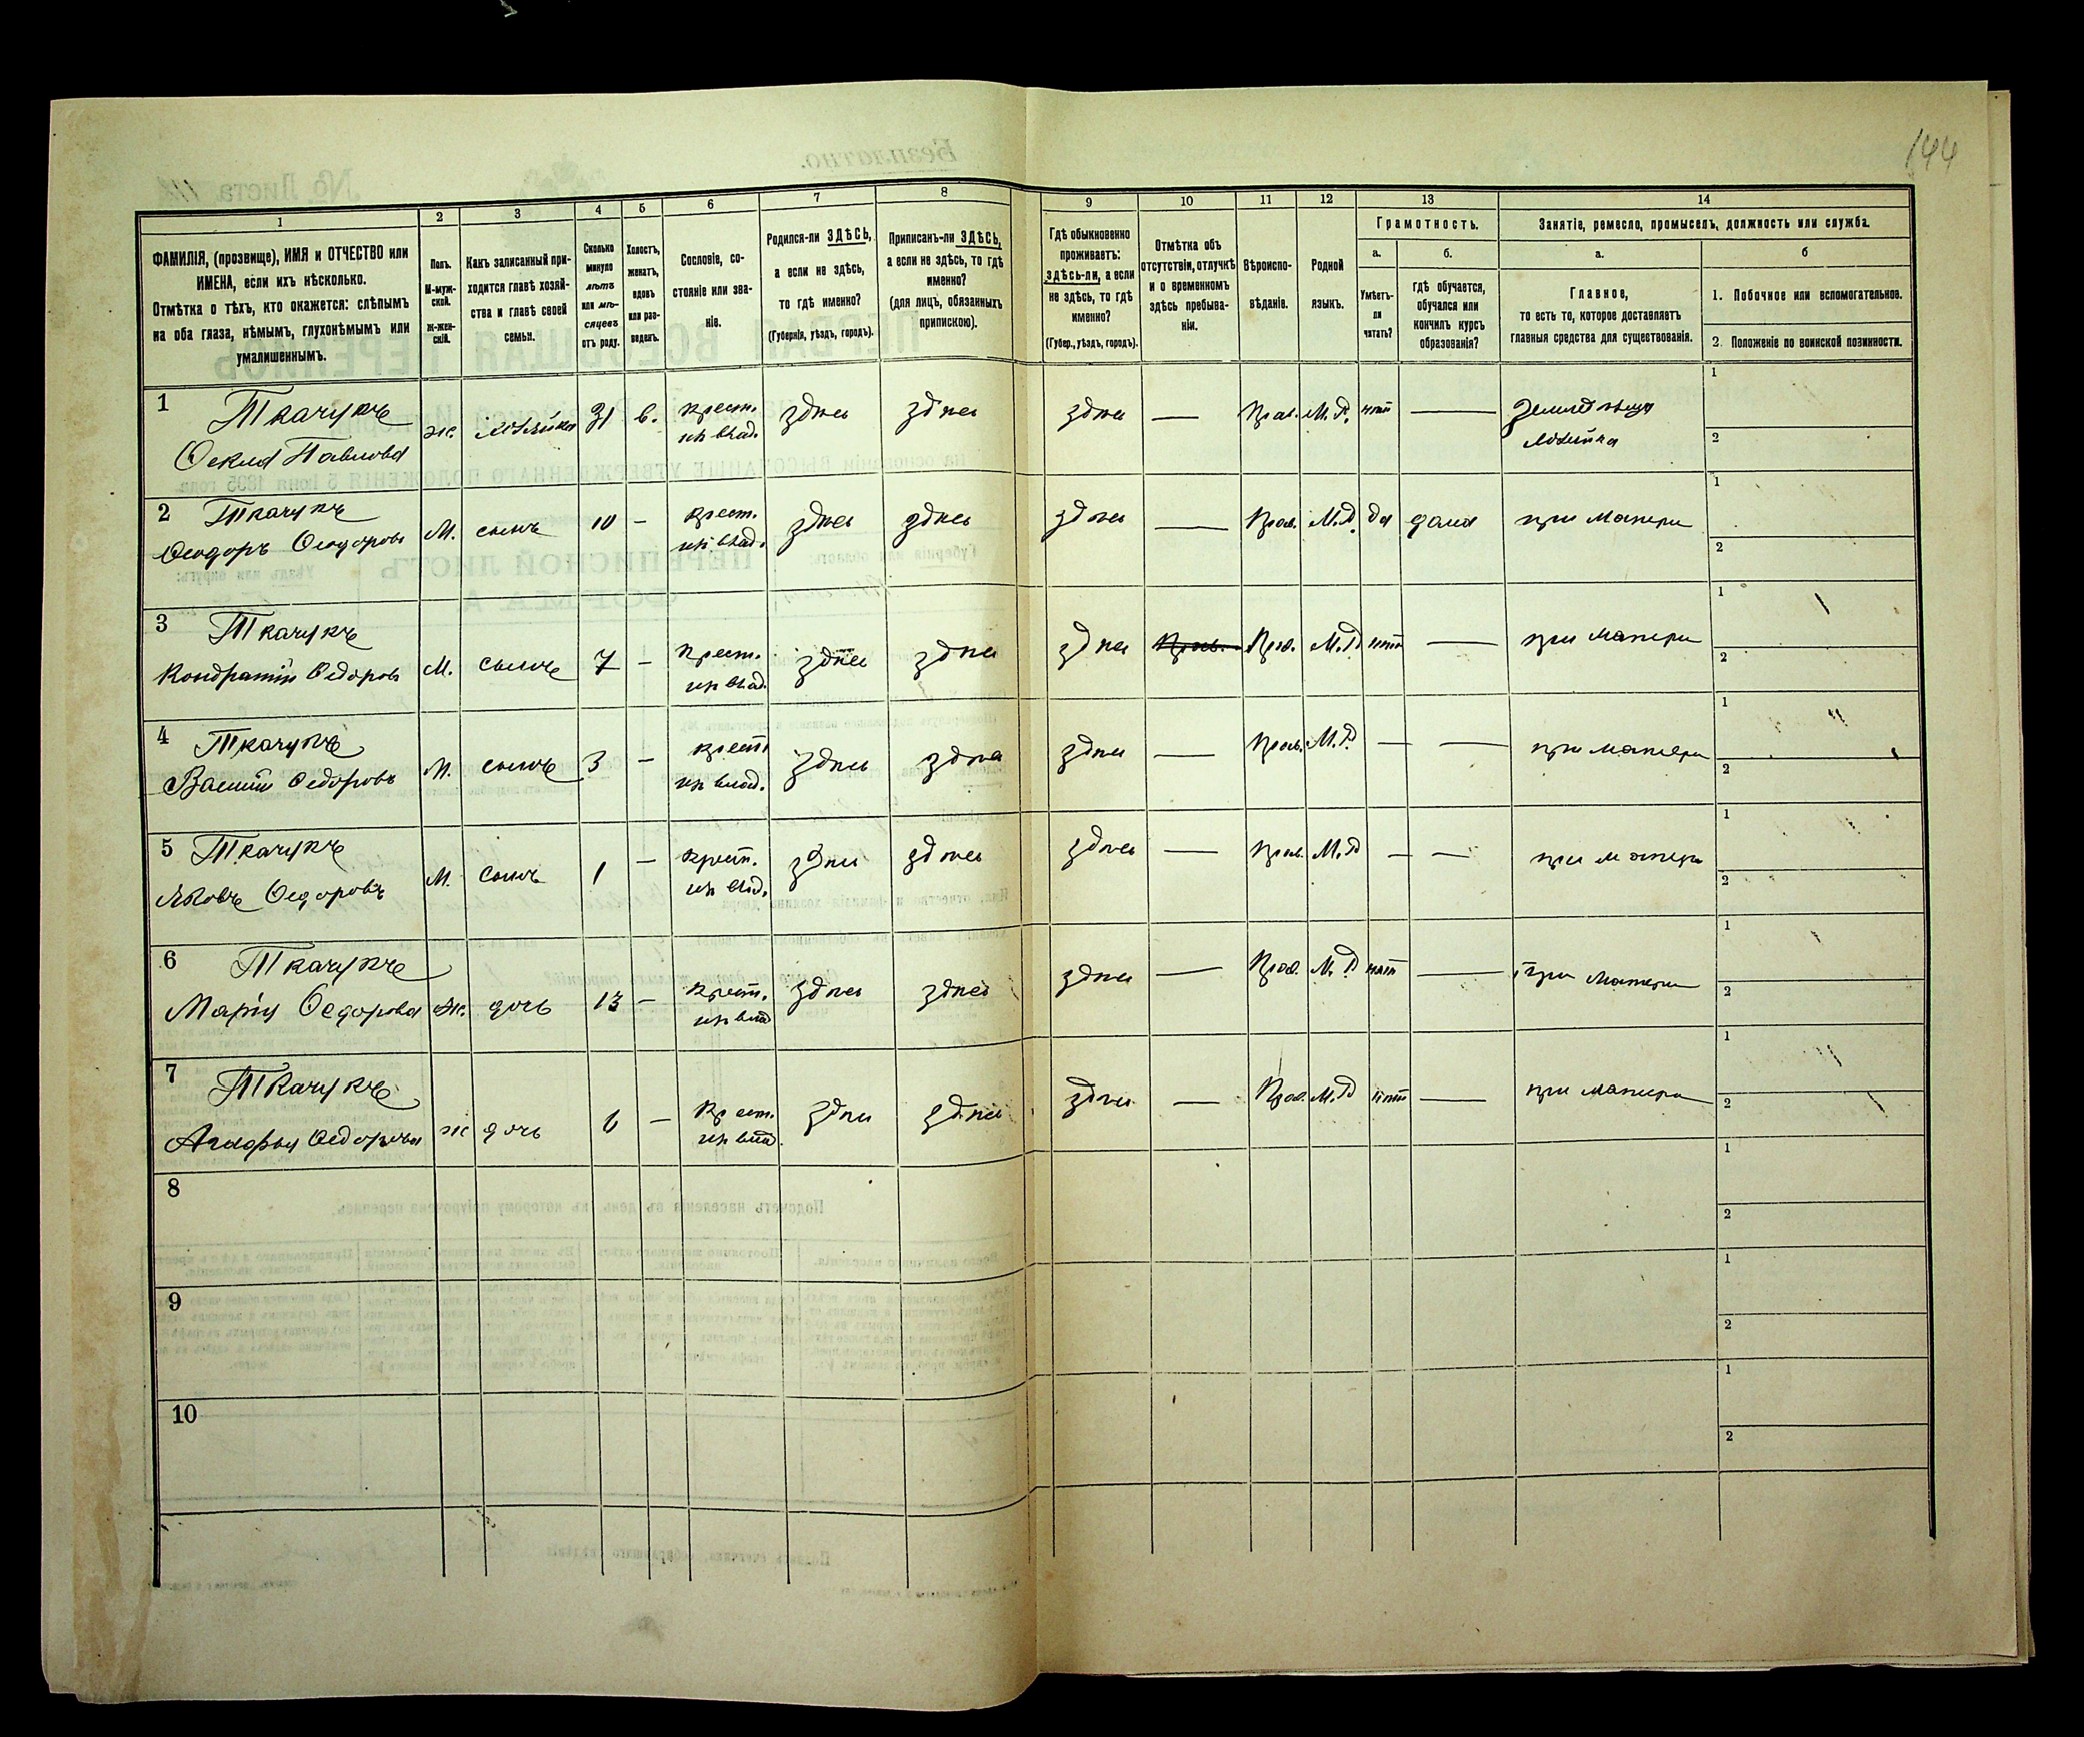 144
1
2
3
4
5
6
7
8
9
10
11
12
13
14
ФАМИЛІЯ, (прозвище), ИМЯ и ОТЧЕСТВО или
ИМЕНА, если ихъ нѣсколько.
Отмѣтка о тѣхъ, кто окажется: слѣпымъ
на оба глаза, нѣмымъ, глухонѣмымъ или
умалишеннымъ.
Полъ.
М-муж-
ской.
Ж-жен-
скій.
Какъ записанный при-
ходится главѣ хозяй-
ства и главѣ своей
семьи.
Сколько
минуло
лѣтъ
или мѣ-
сяцевъ
отъ роду.
Холостъ,
женатъ,
вдовъ
или раз-
веденъ.
Сословіе, со-
стояніе или зва-
ніе.
Родился-ли ЗДѢСЬ,
а если не здѣсь,
то гдѣ именно?
(Губернія, уѣздъ, городъ).
Приписанъ-ли ЗДѢСЬ,
а если не здѣсь, то гдѣ
именно?
(для лицъ, обязанныхъ
припискою).
Гдѣ обыкновенно
проживаетъ:
здѣсь-ли, а если
не здѣсь, то гдѣ
именно?
(Губер., уѣздъ, городъ).
Отмѣтка объ
отсутствіи, отлучкѣ
и о временномъ
здѣсь пребыва-
ніи.
Вѣроиспо-
вѣданіе.
Родной
языкъ.
Грамотность.
а.
Умѣетъ-
ли
читать?
б.
гдѣ обучается,
обучался или
кончилъ курсъ
образованія?
Занятіе, ремесло, промыселъ, должность или служба.
а.
Главное,
то есть то, которое доставляетъ
главныя средства для существованія.
б
1. Побочное или вспомогательное.
2. Положеніе по воинской повинности.
1 Ткачукъ
Ѳекла Павлова
ж. хозяйка 31 в. крест.
из влад.
здѣсь здѣсь здѣсь — Прав. М.Р. нѣтъ —
хозяйка
1
2
2 Ткачукъ
Ѳеодоръ Ѳеодоровъ
М. сынъ 10 — крест.
из влад.
здѣсь здѣсь здѣсь — Прав. М.Р. да дома при матери
1
2
3 Ткачукъ
Кондратій Ѳедоровъ
М. сынъ 7 — крест.
из влад.
здѣсь здѣсь здѣсь Прав. Прав. М.Р. нѣтъ — при матери
1
2
4 Ткачукъ
Василій Ѳедоровъ
М. сынъ 3 — крест
из влад.
здѣсь здѣсь здѣсь — Прав. М.Р. — — при матери
1
2
5 Ткачукъ
Яковъ Ѳедоровъ
М. сынъ 1 — крест.
из влад.
здѣсь здѣсь здѣсь — Прав. М.Р. — — при матери
1
2
6 Ткачукъ
Марія Ѳедорова
Ж. дочь 13 — крест.
из влад
здѣсь здѣсь здѣсь — Прав. М.Р. нѣтъ — при матери
1
2
7 Ткачукъ
Агафья Ѳедорова
ж дочь 6 — крест.
из влад.
здѣсь здѣсь здѣсь — Прав. М.Р. нѣтъ — при матери
1
2
8
1
2
9
1
2
10
1
2